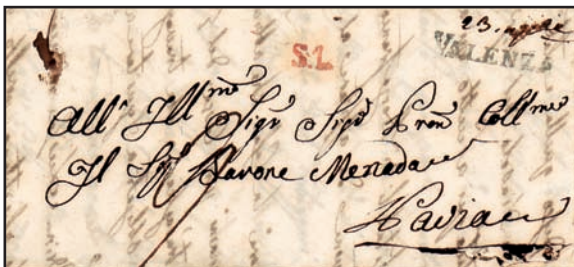 23. aprile
VALENZA
S.L.
All' Ill.mo
Sigr Sigr Pron Coll.mo
Il Sigr Barone Menada
Pavia